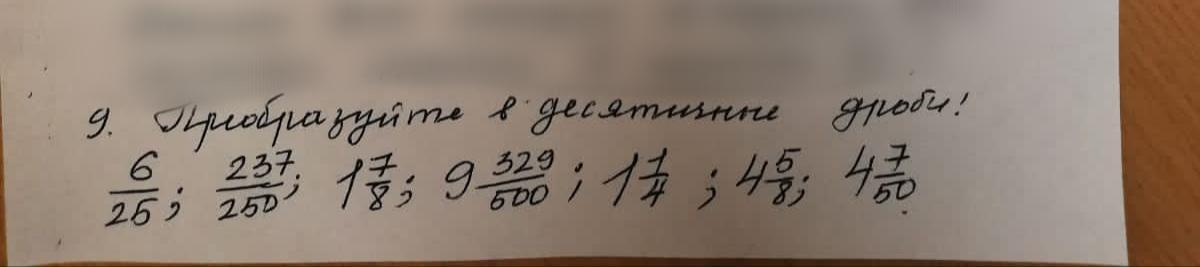 9. Преобразуйте в десятичные дроби!
6/25; 237/250; 1 7/8; 9 329/500; 1 1/4; 4 5/8; 4 7/50.